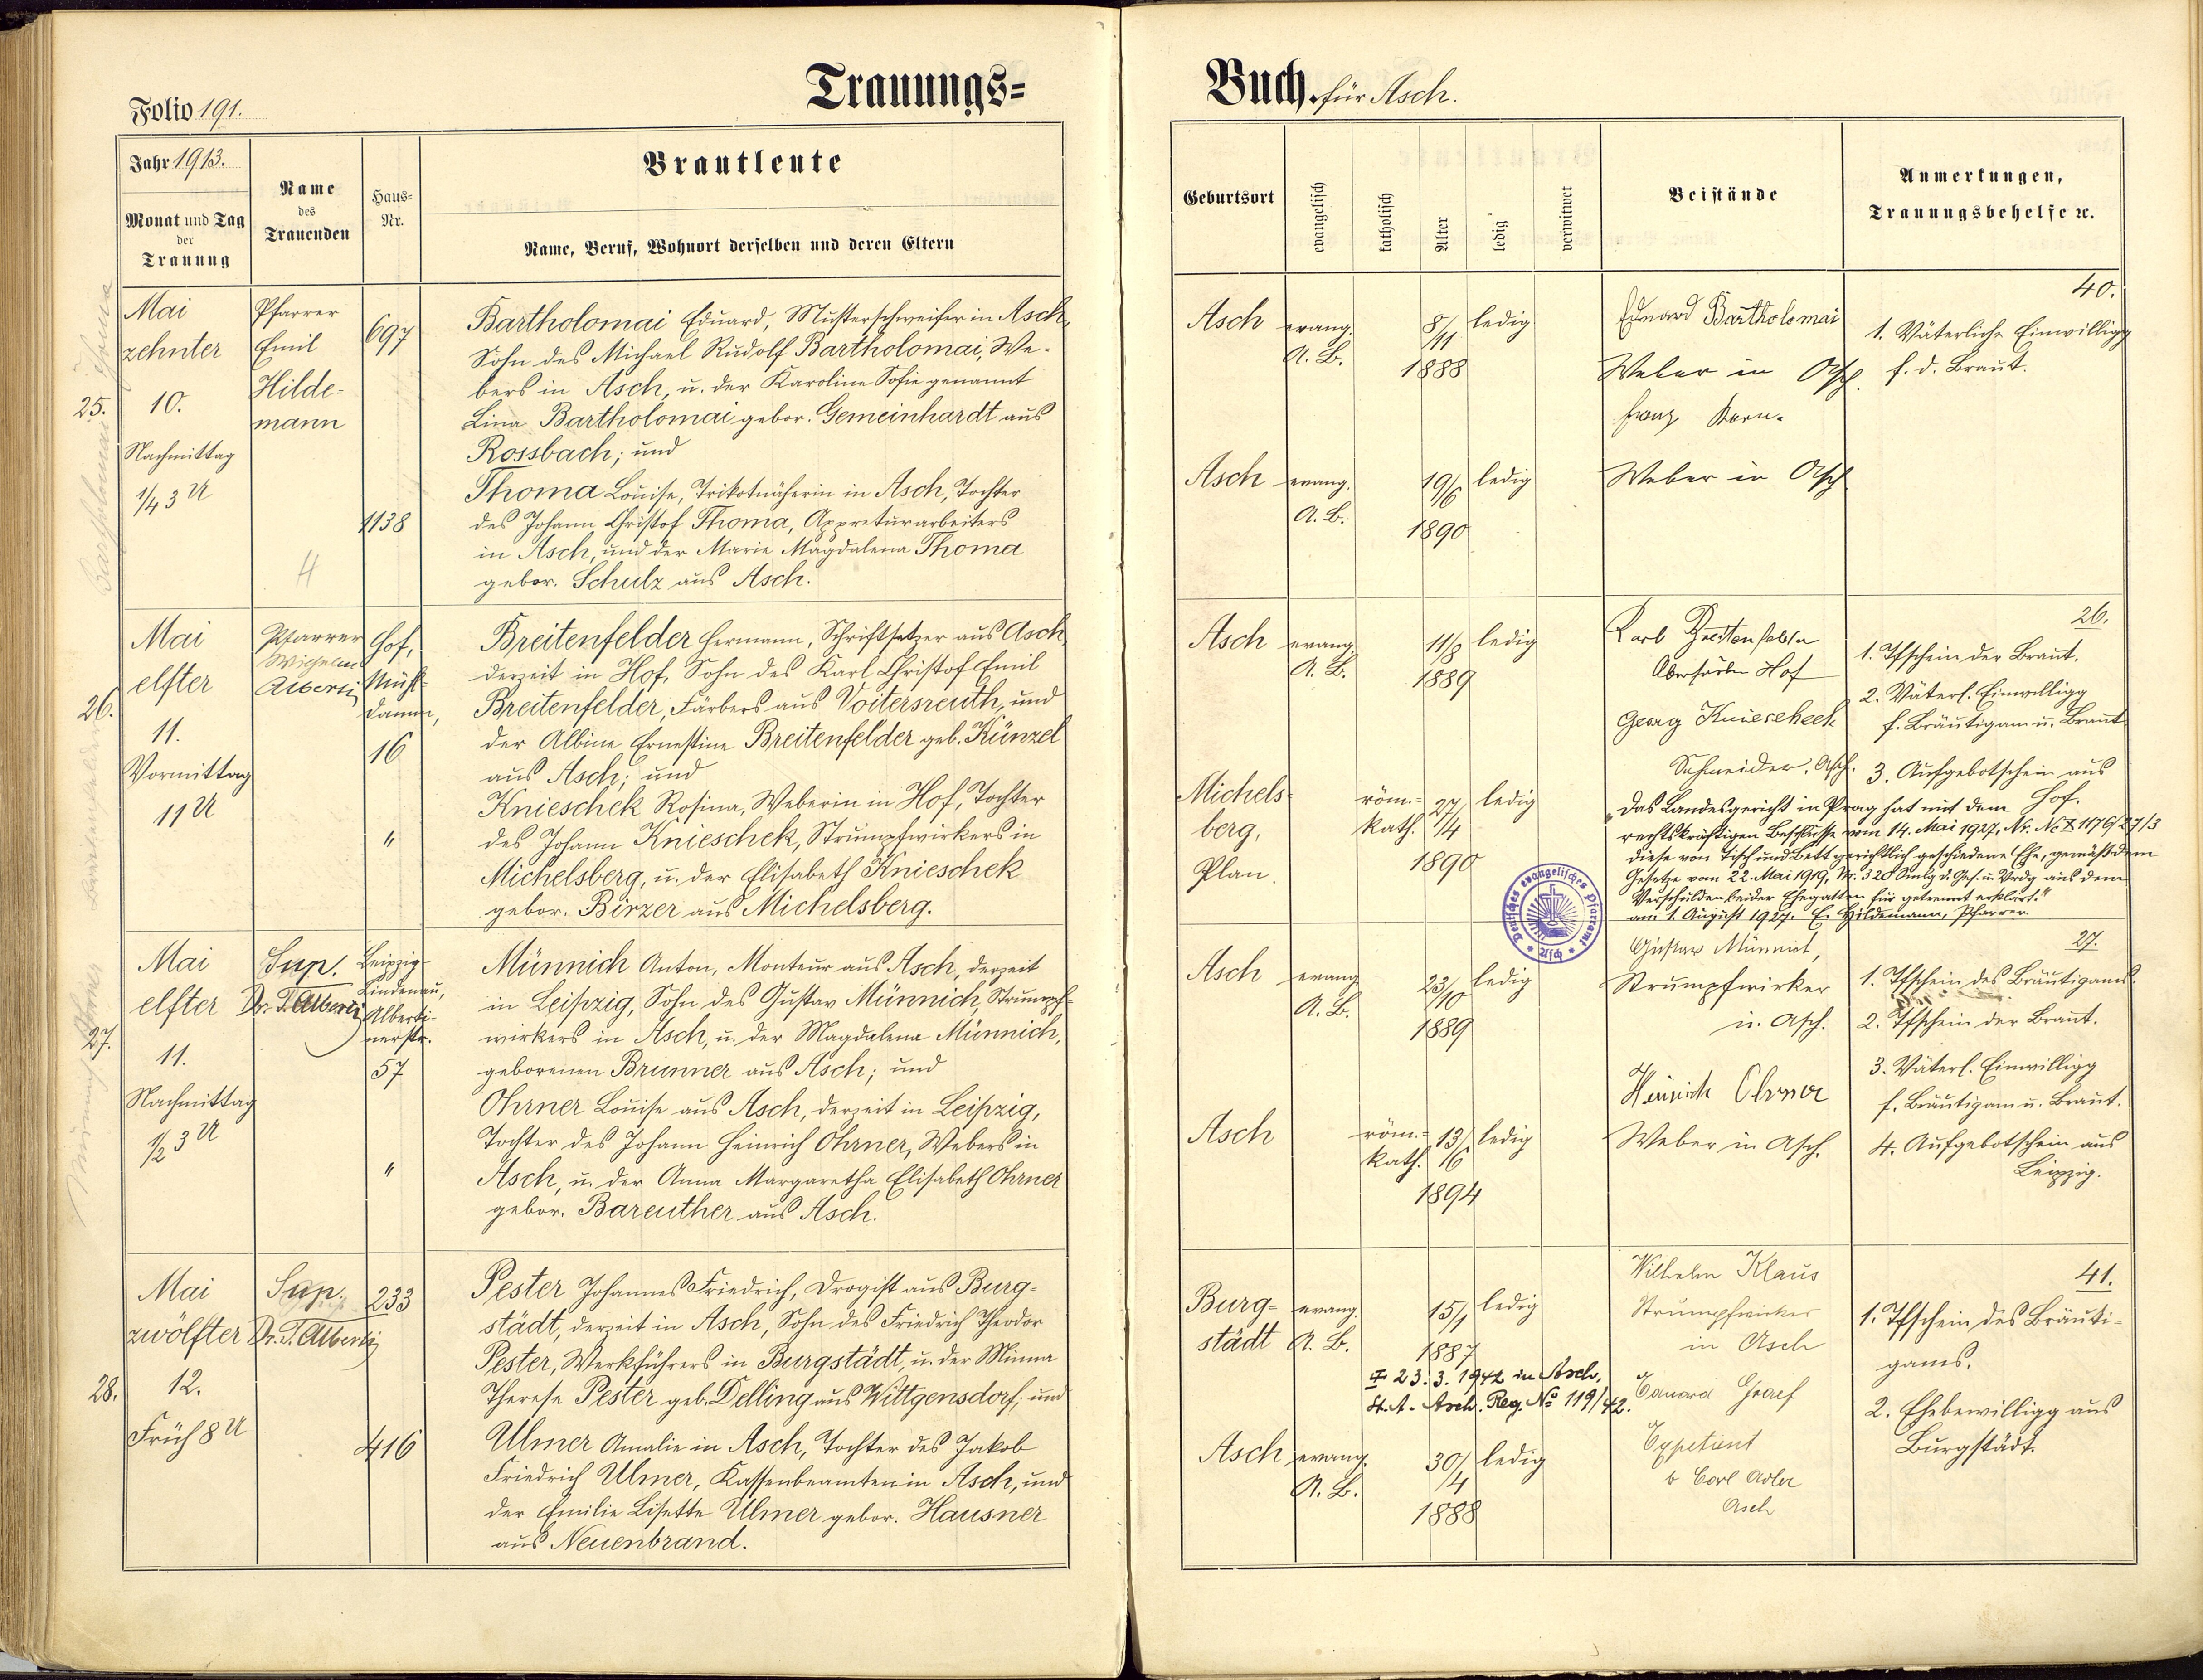 Trauungs=
Buch für Asch.
Folio 191.
Jahr 1913.
Monat und Tag
der
Trauung
Name
des
Trauenden
Haus=
Nr.
Brautleute
Name, Beruf, Wohnort derselben und deren Eltern
Geburtsort
evangelisch
katholisch
Alter
ledig
verwitwet
Beistände
Anmerkungen,
Trauungsbehelfe ꝛc.
25.
Mai
zehnter
10.
Nachmittag
1/4 3 U
Pfarrer
Emil
Hilde-
mann
4
697
1138
Bartholomai Eduard, Musterschweifer in Asch,
Sohn des Michael Rudolf Bartholomai, We-
bers in Asch, u. der Karoline Sofie genannt
Lina Bartholomai gebor. Gemeinhardt aus
Rossbach; und
Thoma Louise, Trikotnäherin in Asch, Tochter
des Johann Christof Thoma, Appreturarbeiters
in Asch, und der Marie Magdalena Thoma
gebor. Schulz aus Asch.
Asch
evang.
A. B.
8/11
1888
ledig
Eduard Bartholomai
Weber in Asch.
Franz Korn.
40.
1. Väterliche Einwilligg
f. d. Braut.
Asch
evang.
A. B.
19/6
1890
ledig
Weber in Asch
26.
Mai
elfter
11.
Vormittag
11 U
Pfarrer
Wilhelm
Alberti
Hof,
Mühl-
damm,
16
"
Breitenfelder Hermann, Schriftsetzer aus Asch,
derzeit in Hof, Sohn des Karl Christof Emil
Breitenfelder, Färbers aus Voitersreuth, und
der Albine Ernestine Breitenfelder geb. Künzel
aus Asch; und
Knieschek Rosina, Weberin in Hof, Tochter
des Johann Knieschek, Strumpfwirkers in
Michelsberg, u. der Elisabeth Knieschek
gebor. Birzer aus Michelsberg.
Asch
evang.
A. B.
11/8
1889
ledig
Karl Breitenfelder
Hof
Georg Knieschek
Schneider, Asch.
26.
1. Tfschein der Braut.
2. Väterl. Einwilligg
f. Bräutigam u. Braut
3. Aufgebotschein aus
Hof.
Michels-
berg,
Plan.
röm.=
kath.
27/4
1890
ledig
"Das Landesgericht in Prag hat mit dem
rechtskräftigen Beschlusse vom 14. Mai 1927, Nr. Nc I 1176/27/3
diese von Tisch und Bett gerichtlich geschiedene Ehe, gemäß dem
Gesetze vom 22. Mai 1919, Nr. 320 Smlg d. Ges. u. Vrdg aus dem
Verschulden beider Ehegatten für getrennt erklärt."
am 1. August 1927. E. Hildemann, Pfarrer.
Deutsches evangelisches Pfarramt
* Asch *
27.
Mai
elfter
11.
Nachmittag
1/2 3 U
Sup.
Dr. T. Alberti
Leipzig-
Lindenau,
Alberti-
nerstr.
57
"
Münnich Anton, Monteur aus Asch, derzeit
in Leipzig, Sohn des Gustav Münnich, Strumpf-
wirkers in Asch, u. der Magdalena Münnich,
geborenen Brunner aus Asch; und
Ohrner Louise aus Asch, derzeit in Leipzig,
Tochter des Johann Heinrich Ohrner, Webers in
Asch, u. der Anna Margaretha Elisabeth Ohrner
gebor. Bareuther aus Asch.
Asch
evang.
A. B.
23/10
1889
ledig
Gustav Münnich,
Strumpfwirker
in Asch.
Heinrich Ohrner
27.
1. Tfschein des Bräutigams.
2. Tfschein der Braut.
3. Väterl. Einwilligg
f. Bräutigam u. Braut.
4. Aufgebotschein aus
Leipzig.
Asch
röm.=
kath.
13/6
1894
ledig
Weber in Asch.
28.
Mai
zwölfter
12.
Früh 8 U
Sup.
Dr. T. Alberti
233
416
Pester Johannes Friedrich, Drogist aus Burg-
städt, derzeit in Asch, Sohn des Friedrich Theodor
Pester, Werkführers in Burgstädt, u. der Minna
Therese Pester geb. Delling aus Wittgensdorf; und
Ulmer Amalie in Asch, Tochter des Jakob
Friedrich Ulmer, Kassenbeamten in Asch, und
der Emilie Lisette Ulmer gebor. Hausner
aus Neuenbrand.
Burg=
städt
evang.
A. B.
15/1
1887
ledig
23.3.1942 in Asch,
St. A. Asch. Reg. No 119/42.
Wilhelm Klaus
Strumpfwirker
in Asch
Eduard Graef
Expetient
b Carl Adler
Asch
41.
1. Tfschein des Bräuti-
gams.
2. Ehebewilligg aus
Burgstädt.
Asch
evang.
A. B.
30/4
1888
ledig